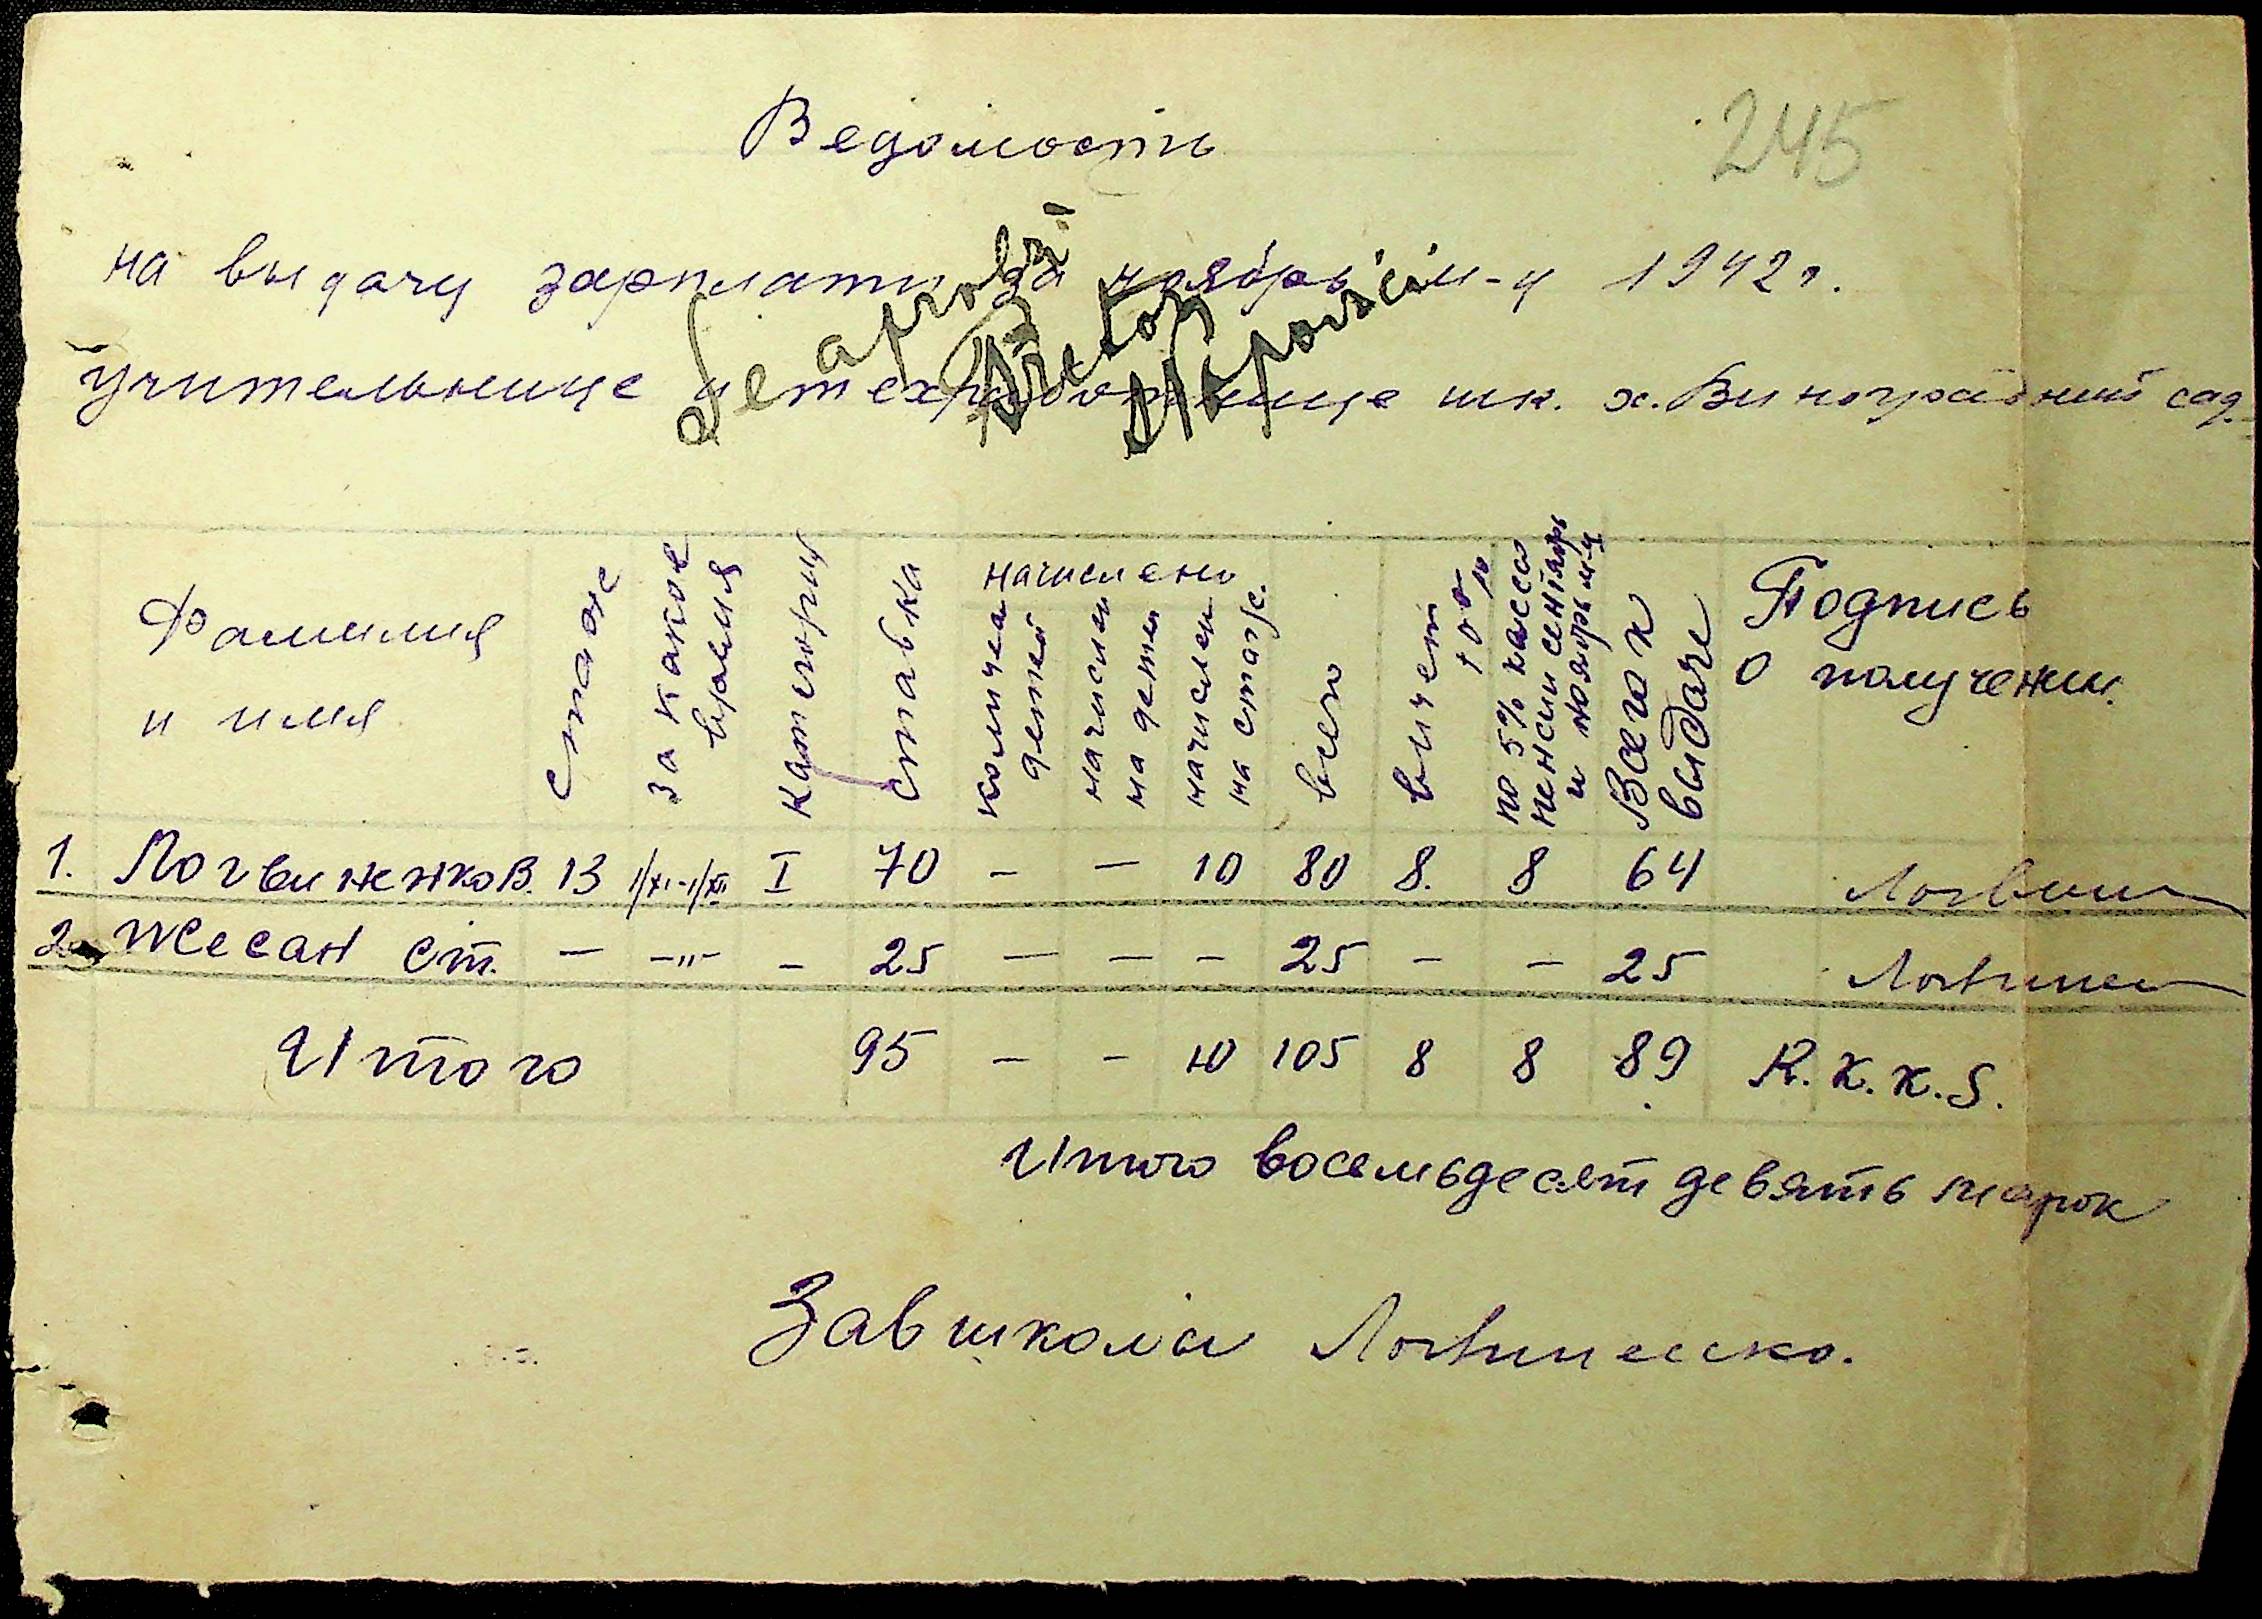 Ведомость
245
на выдачу зарплаты за ноябрь м-ц 1942 г.
учительнице и техработнице шк. х. Виноградний сад.
Se aprobă
Pretor
Фамилия и имя
стаж
за какое время
категория
ставка
начислено
количеа детей
начислен на детей
начислен на стаж.
всего
вычет 10%
по 5% кассы пенсии сентябрь и ноябрь м-ц
Всего к выдаче
Подпись о получении.
1. Логвиненко В. 13 1/XI-1/XII I 70 – – 10 80 8. 8 64 Логвин
2. Жесан Ст. – -"- – 25 – – – 25 – – 25 Логвинен
Итого 95 – – 10 105 8 8 89 R.K.K.S.
Итого восемьдесят девять марок
Завшколы Логвиненко.